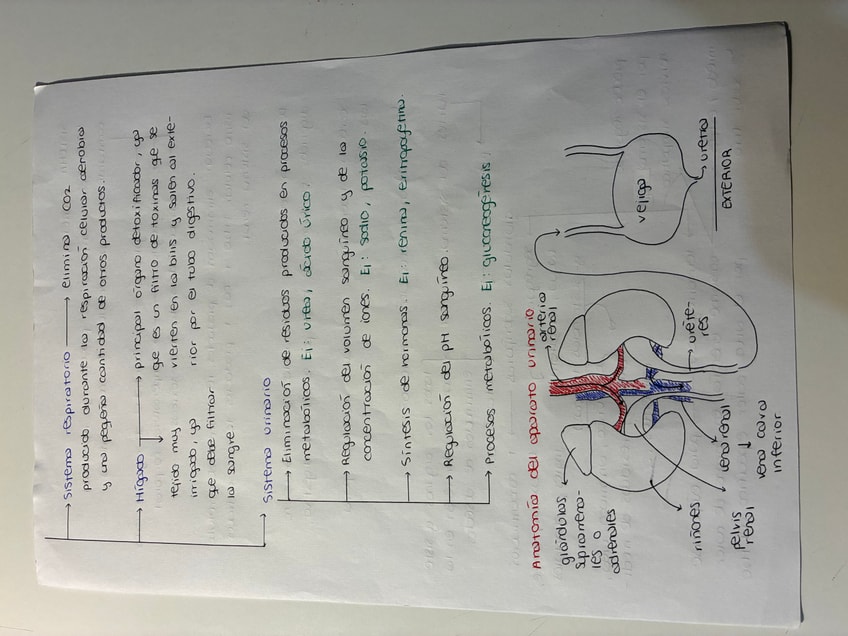 Sistema respiratorio → elimina CO2
producido durante la respiración celular aerobia
y una pegena cantidad de otros productos.
Hígado → principal órgano detoxificador, ya
que es un filtro de toxinas que se
vierten en la bilis y salen al exte-
rior por el tubo digestivo.
tejido muy
irrigado, ya
que debe filtrar
la sangre.
Sistema urinario
→ Eliminación de residuos producidos en procesos
metabólicos. Ej: urea, ácido úrico.
→ Regulación del volumen sanguíneo y de la
concentración de iones. Ej: sodio, potasio.
→ Síntesis de hormonas. Ej: renina, eritropoyetina.
→ Regulación del pH sanguíneo.
→ Procesos metabólicos. Ej: gluconeogénesis.
Anatomía del aparato urinario
glándulas
suprarrena-
les o
adrenales
arteria
renal
riñones
pelvis
renal
vena renal
↓
vena cava
inferior
uréte-
res
vejiga
uretra
EXTERIOR